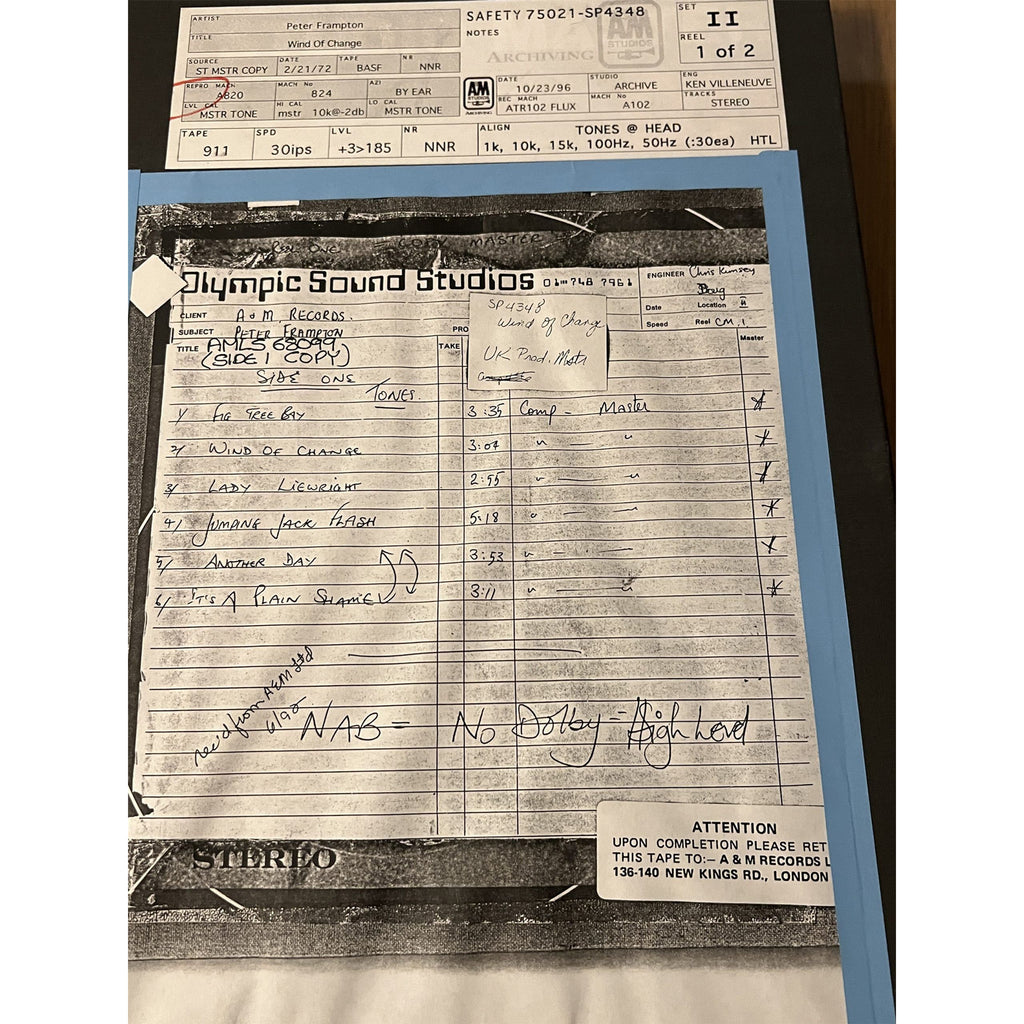 ARTIST Peter Frampton
TITLE Wind Of Change
SAFETY 75021-SP4348
NOTES
ARCHIVING
A&M STUDIOS
SET II
REEL 1 of 2
SOURCE ST MSTR COPY DATE 2/21/72 TAPE BASF NR NNR
REPRO MACH A820 MACH No 824 AZI BY EAR
LVL CAL MSTR TONE HI CAL mstr 10k@-2db LO CAL MSTR TONE
A&M STUDIOS ARCHIVING
DATE 10/23/96 STUDIO ARCHIVE ENG KEN VILLENEUVE
REC MACH ATR102 FLUX MACH No A102 TRACKS STEREO
TAPE 911 SPD 30ips LVL +3>185 NR NNR ALIGN TONES @ HEAD
1k, 10k, 15k, 100Hz, 50Hz (:30ea) HTL
REEL ONE COPY MASTER
Olympic Sound Studios 01-748 7961
ENGINEER Chris Kimsey
Doug
Date Location
Speed Reel CM.1
CLIENT A & M RECORDS.
SUBJECT PETER FRAMPTON
TITLE AMLS 68099
(SIDE 1 COPY)
PRO
TAKE
Master
SP4348
Wind Of Change
UK Prod. Mstr
SIDE ONE
TONES.
1/ FIG TREE BAY 3:35 Comp - Master *
2/ WIND OF CHANGE 3:04 " — " *
3/ LADY LIEWRIGHT 2:55 " — " *
4/ JUMPING JACK FLASH 5:18 " — " *
5/ ANOTHER DAY 3:53 " — " *
6/ IT'S A PLAIN SHAME 3:11 " — " *
rec'd from A&M Ltd
6/92
NAB = No Dolby = High Level
STEREO
ATTENTION
UPON COMPLETION PLEASE RET
THIS TAPE TO:– A & M RECORDS L
136-140 NEW KINGS RD., LONDON